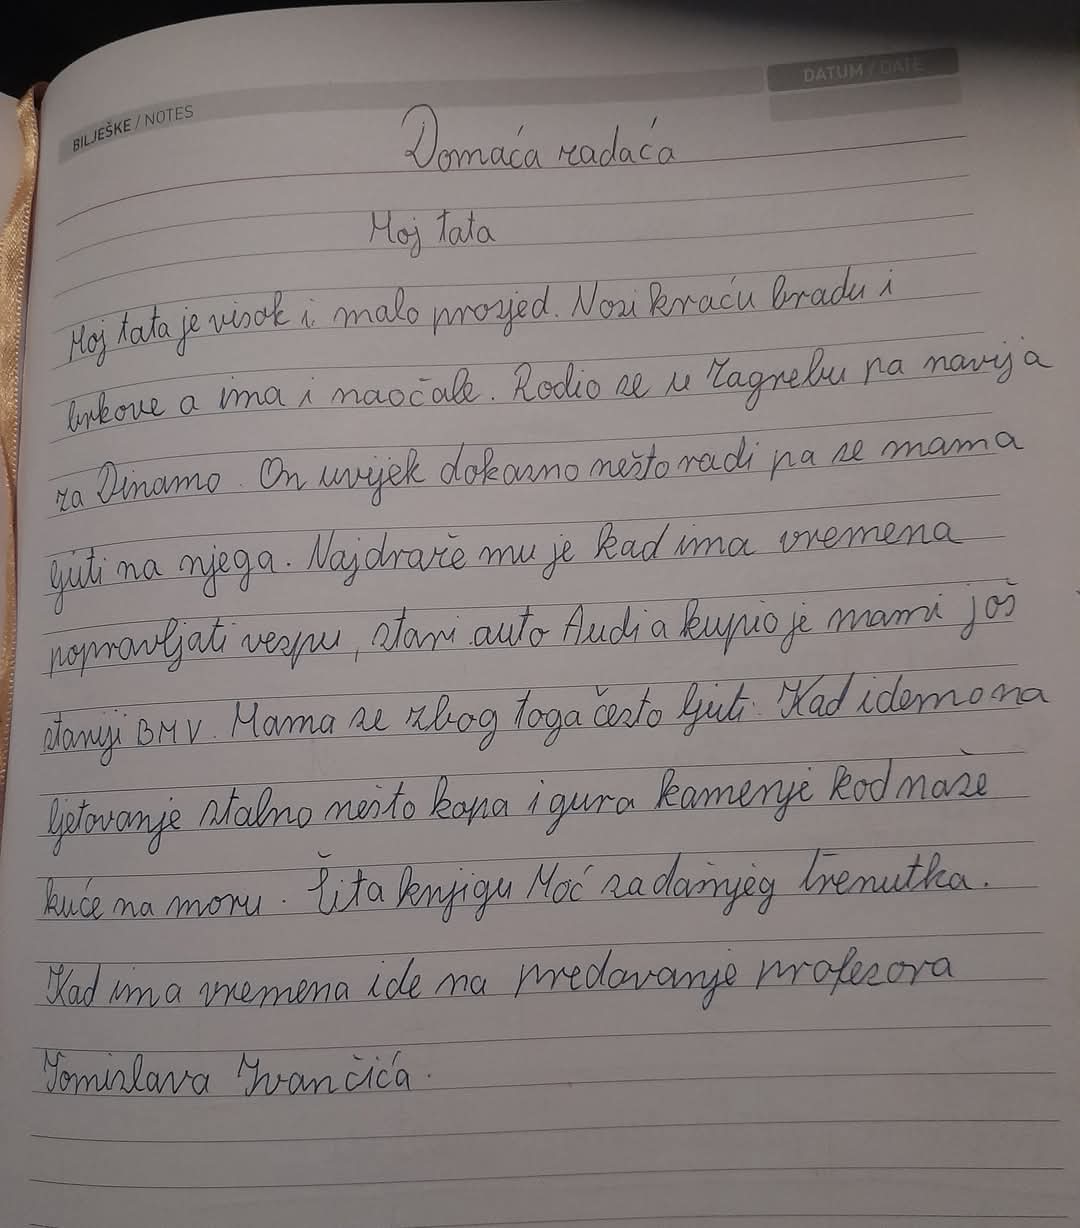 BILJEŠKE / NOTES
DATUM / DATE
Domaća zadaća
Moj tata
Moj tata je visok i malo prosjed. Nosi kraću bradu i
brkove a ima i naočale. Rodio se u Zagrebu pa navija
za Dinamo. On uvijek dokasno nešto radi pa se mama
ljuti na njega. Najdraže mu je kad ima vremena
popravljati vespu, stari auto Audi a kupio je mami još
stariji BMV. Mama se zbog toga često ljuti. Kad idemo na
ljetovanje stalno nešto kopa i gura kamenje kod naše
kuće na moru. Čita knjigu Moć sadašnjeg trenutka.
Kad ima vremena ide na predavanje profesora
Tomislava Ivančića.